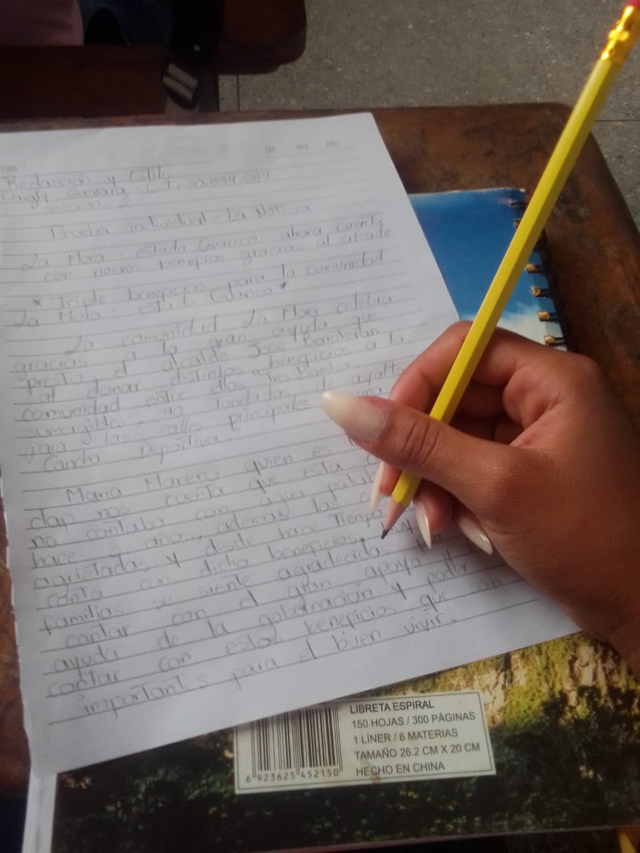 Redacción y Estilo
Sección 2
Prueba individual - La Noticia
La Mora - Estado Guarico ahora cuenta
con nuevos benefios gracias al alcalde
* Triple beneficios para la comunidad
La Mora - estado Guarico *
La comunidad La Mora celebra
gracias a la gran ayuda que
presto el alcalde José
al donar distintos beneficios a la
comunidad entre ellos tres
sumergibles, 40 toneladas de asfalto
para las calles principales
Cancha Deportiva.
Maria Moreno quien es
clap nos cuenta que esta
no contaba con agua potable
hace 3 años, ademas las
agrietadas y desde hace Tiempo
conta con dicho beneficios,
familias se siente agradecidas
contar con el gran apoyo y
ayuda de la gobernación y poder
contar con estos beneficios que son
importantes para el buen vivir.
LIBRETA ESPIRAL
150 HOJAS / 300 PÁGINAS
1 LÍNER / 6 MATERIAS
TAMAÑO 26.2 CM X 20 CM
HECHO EN CHINA
6 923625 452150